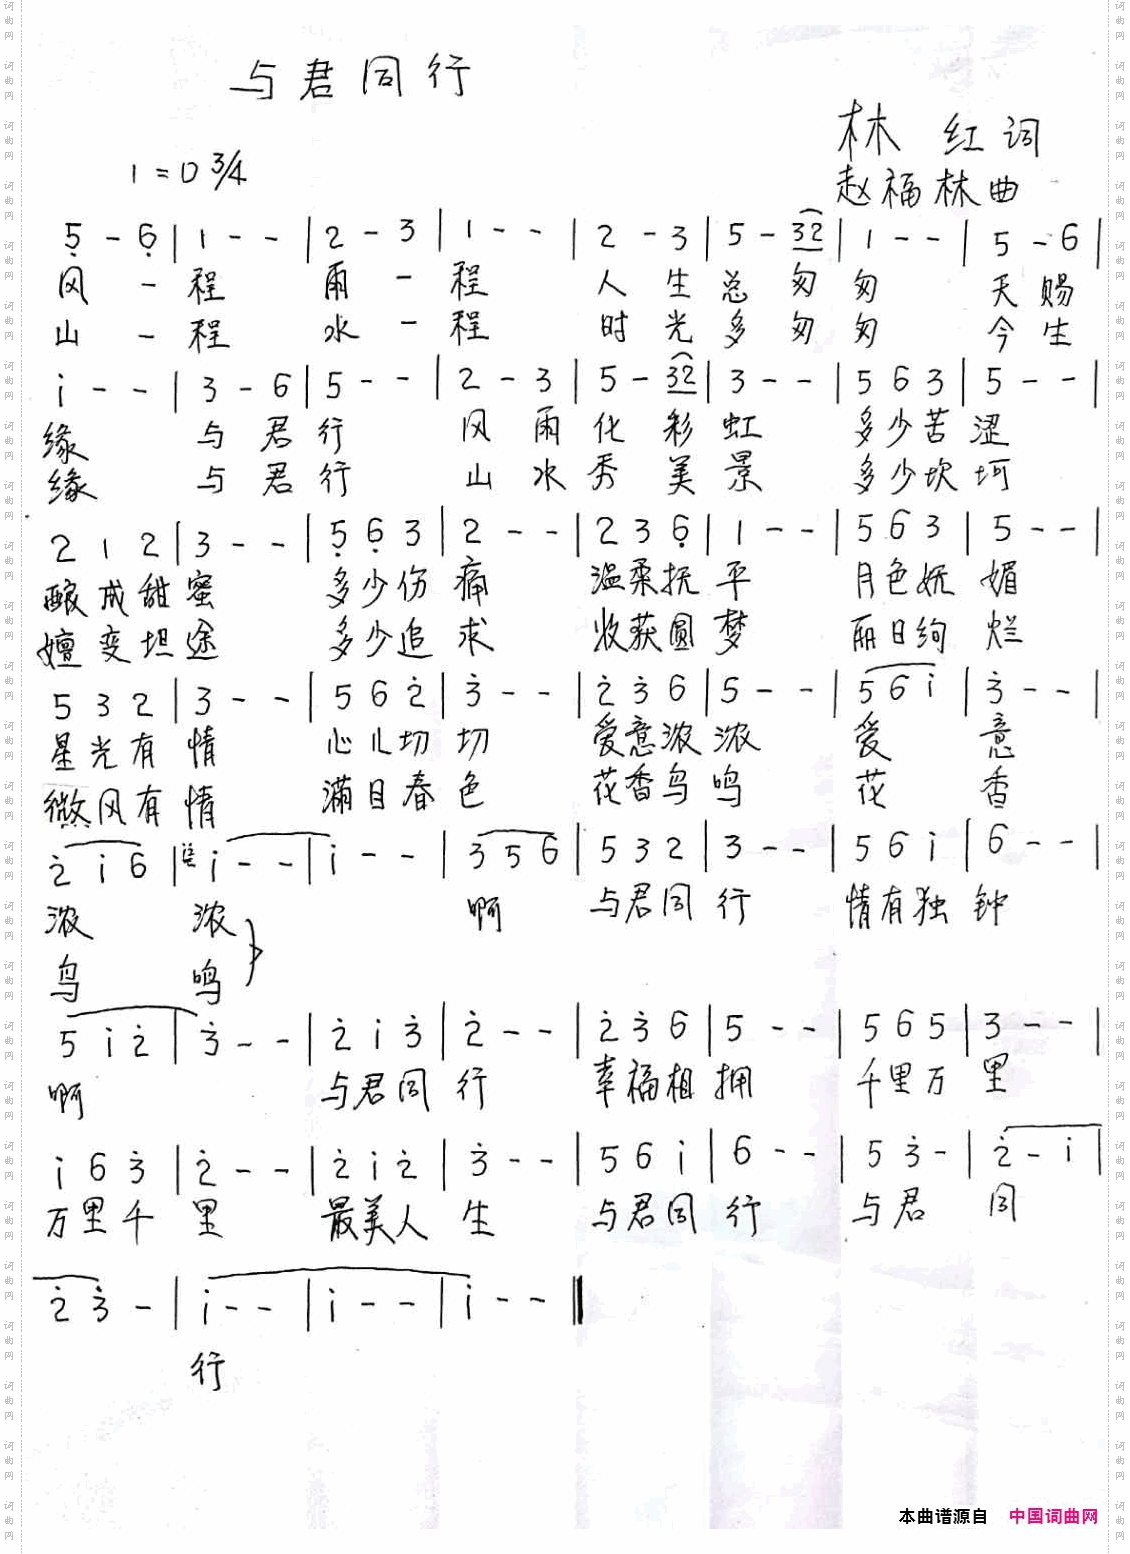 与君同行
林 红 词
1=D 3/4
赵福林曲
5 - 6 | 1 - - | 2 - 3 | 1 - - | 2 - 3 | 5 - 32 | 1 - - | 5 - 6 |
风 一 程 雨 一 程 人 生 总 匆 匆 天 赐
山 一 程 水 一 程 时 光 多 匆 匆 今 生
i - - | 3 - 6 | 5 - - | 2 - 3 | 5 - 32 | 3 - - | 5 6 3 | 5 - - |
缘 与 君 行 风 雨 化 彩 虹 多少苦 涩
缘 与 君 行 山 水 秀 美 景 多少坎 坷
2 1 2 | 3 - - | 5 6 3 | 2 - - | 2 3 6 | 1 - - | 5 6 3 | 5 - - |
酿成甜蜜 多少伤痛 温柔抚平 月色妩媚
嬗变坦途 多少追求 收获圆梦 丽日绚烂
5 3 2 | 3 - - | 5 6 2̇ | 3̇ - - | 2̇ 3̇ 6 | 5 - - | 5 6 i | 3̇ - - |
星光有情 心儿切切 爱意浓浓 爱 意
微风有情 满目春色 花香鸟鸣 花 香
2̇ i 6 | i - - | i - - | 3 5 6 | 5 3 2 | 3 - - | 5 6 i | 6 - - |
浓 浓 啊 与君同行 情有独钟
鸟 鸣
5 i 2̇ | 3̇ - - | 2̇ i 3̇ | 2̇ - - | 2̇ 3̇ 6 | 5 - - | 5 6 5 | 3 - - |
啊 与君同行 幸福相拥 千里万里
i 6 3̇ | 2̇ - - | 2̇ i 2̇ | 3̇ - - | 5 6 i | 6 - - | 5 3̇ - | 2̇ - i |
万里千里 最美人生 与君同行 与君 同
2̇ 3̇ - | i - - | i - - | i - - ‖
行
本曲谱源自 中国词曲网